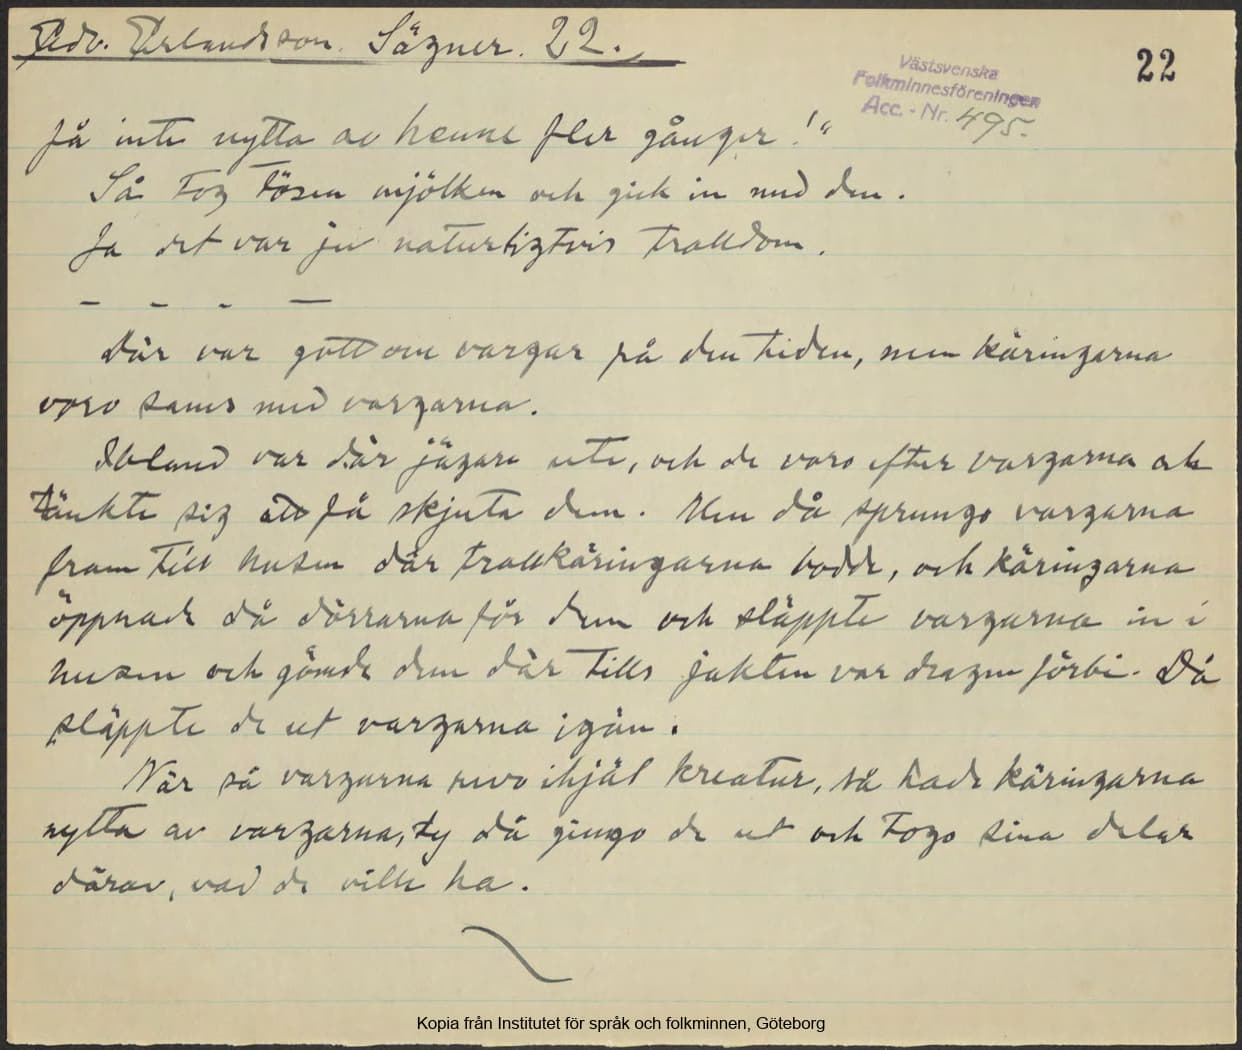 Edv. Erlandsson. Sägner. 22.
22
Västsvenska
Folkminnesföreningen
Acc. - Nr. 495.
få inte nytta av henne fler gånger!"
Så tog tösen mjölken och gick in med den.
Ja det var ju naturligtvis trolldom.
- - - —
Där var gott om vargar på den tiden, men käringarna
voro sams med vargarna.
Ibland var där jägare ute, och de voro efter vargarna och
tänkte sig att få skjuta dem. Men då sprungo vargarna
fram till husen där trollkäringarna bodde, och käringarna
öppnade då dörrarna för dem och släppte vargarna in i
husen och gömde dem där tills jakten var dragen förbi. Då
släppte de ut vargarna igän.
När så vargarna revo ihjäl kreatur, så hade käringarna
nytta av vargarna, ty då gingo de ut och togo sina delar
därav, vad de ville ha.
Kopia från Institutet för språk och folkminnen, Göteborg